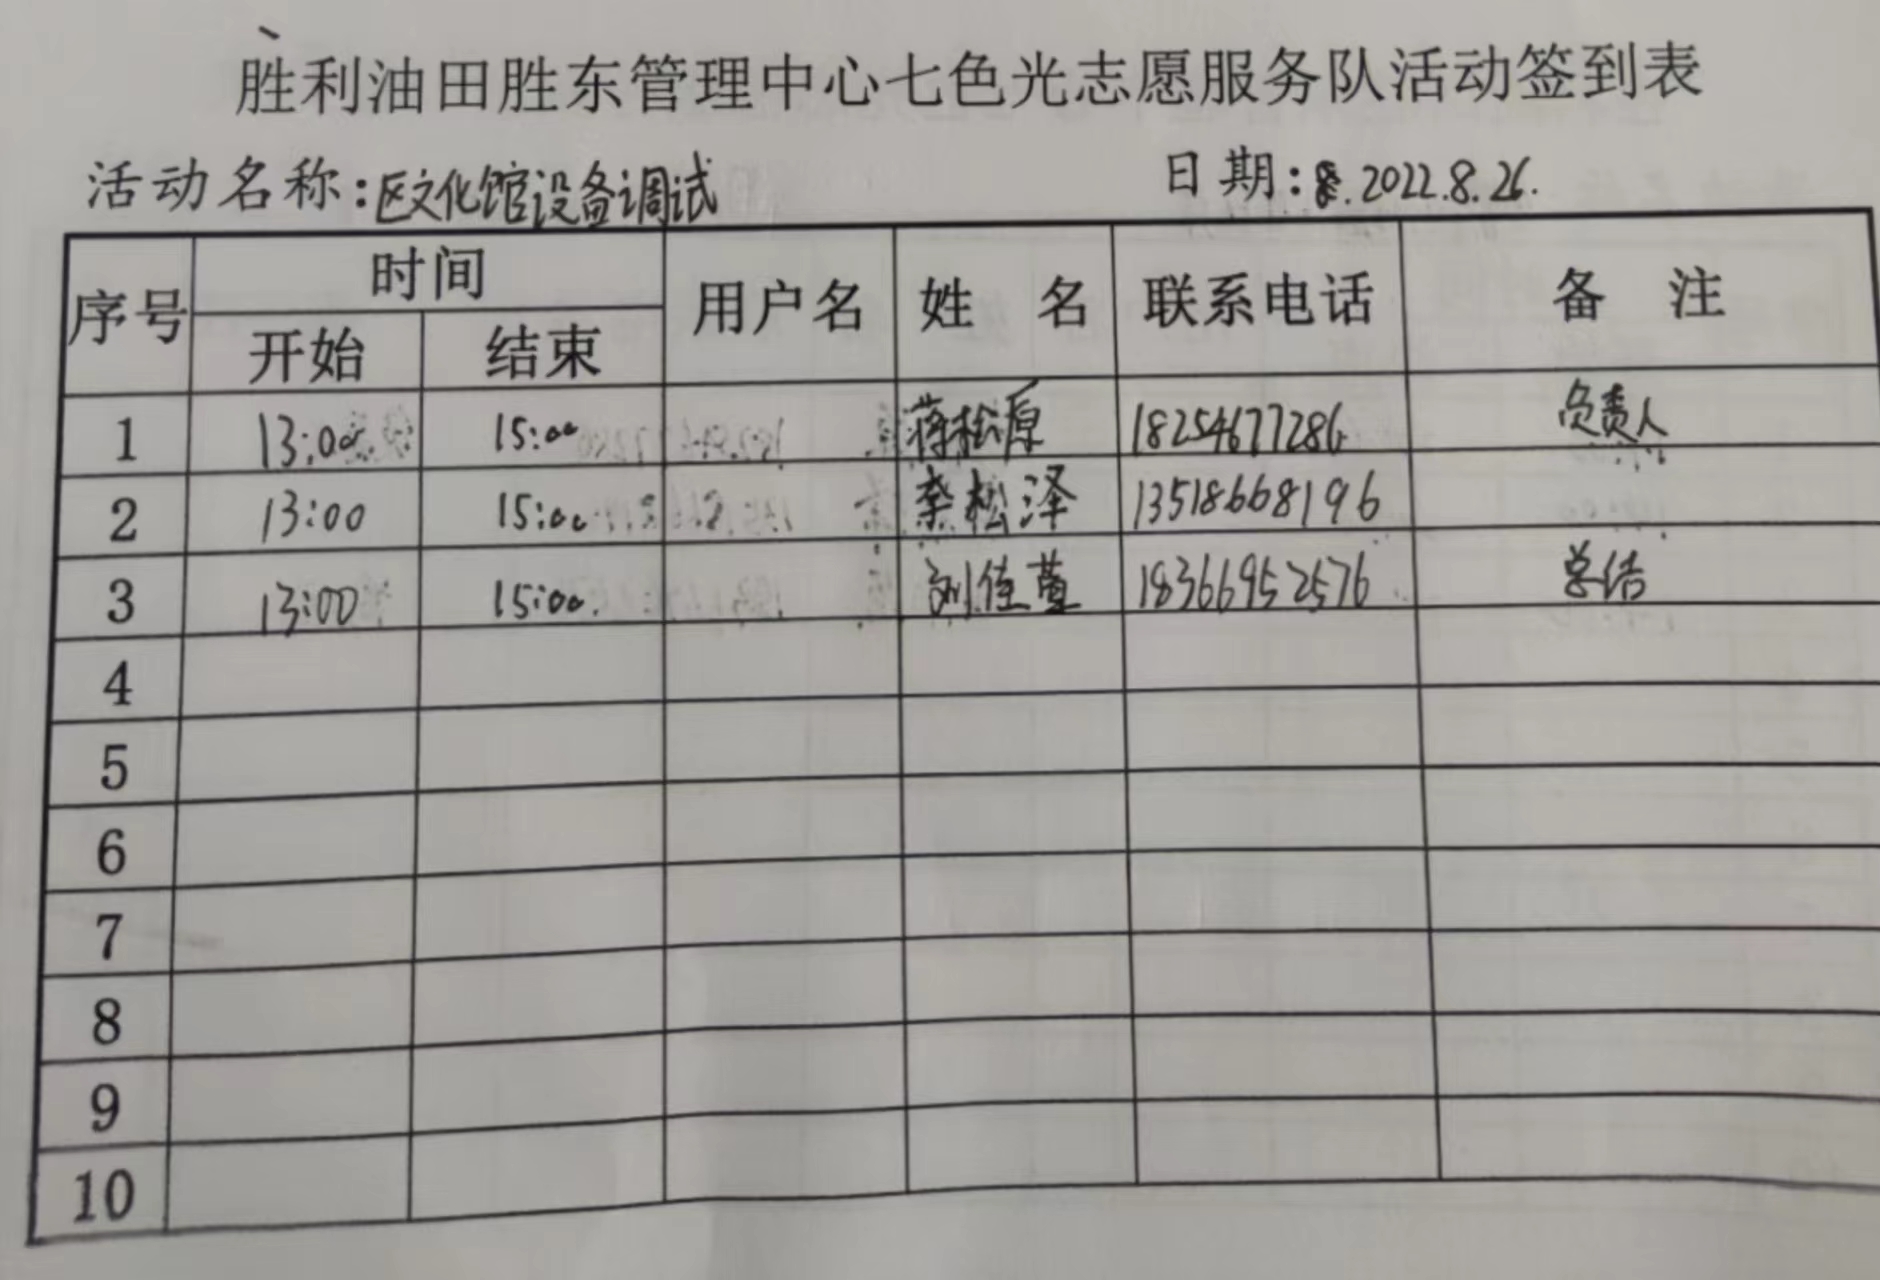 胜利油田胜东管理中心七色光志愿服务队活动签到表
活动名称:区文化馆设备调试 日期:8.2022.8.26.
序号 时间 用户名 姓 名 联系电话 备 注
开始 结束
1 13:00 15:00 蒋松原 18254677286 负责人
2 13:00 15:00 秦松泽 13518668196
3 13:00 15:00. 刘佳萱 18366952576 总结
4
5
6
7
8
9
10